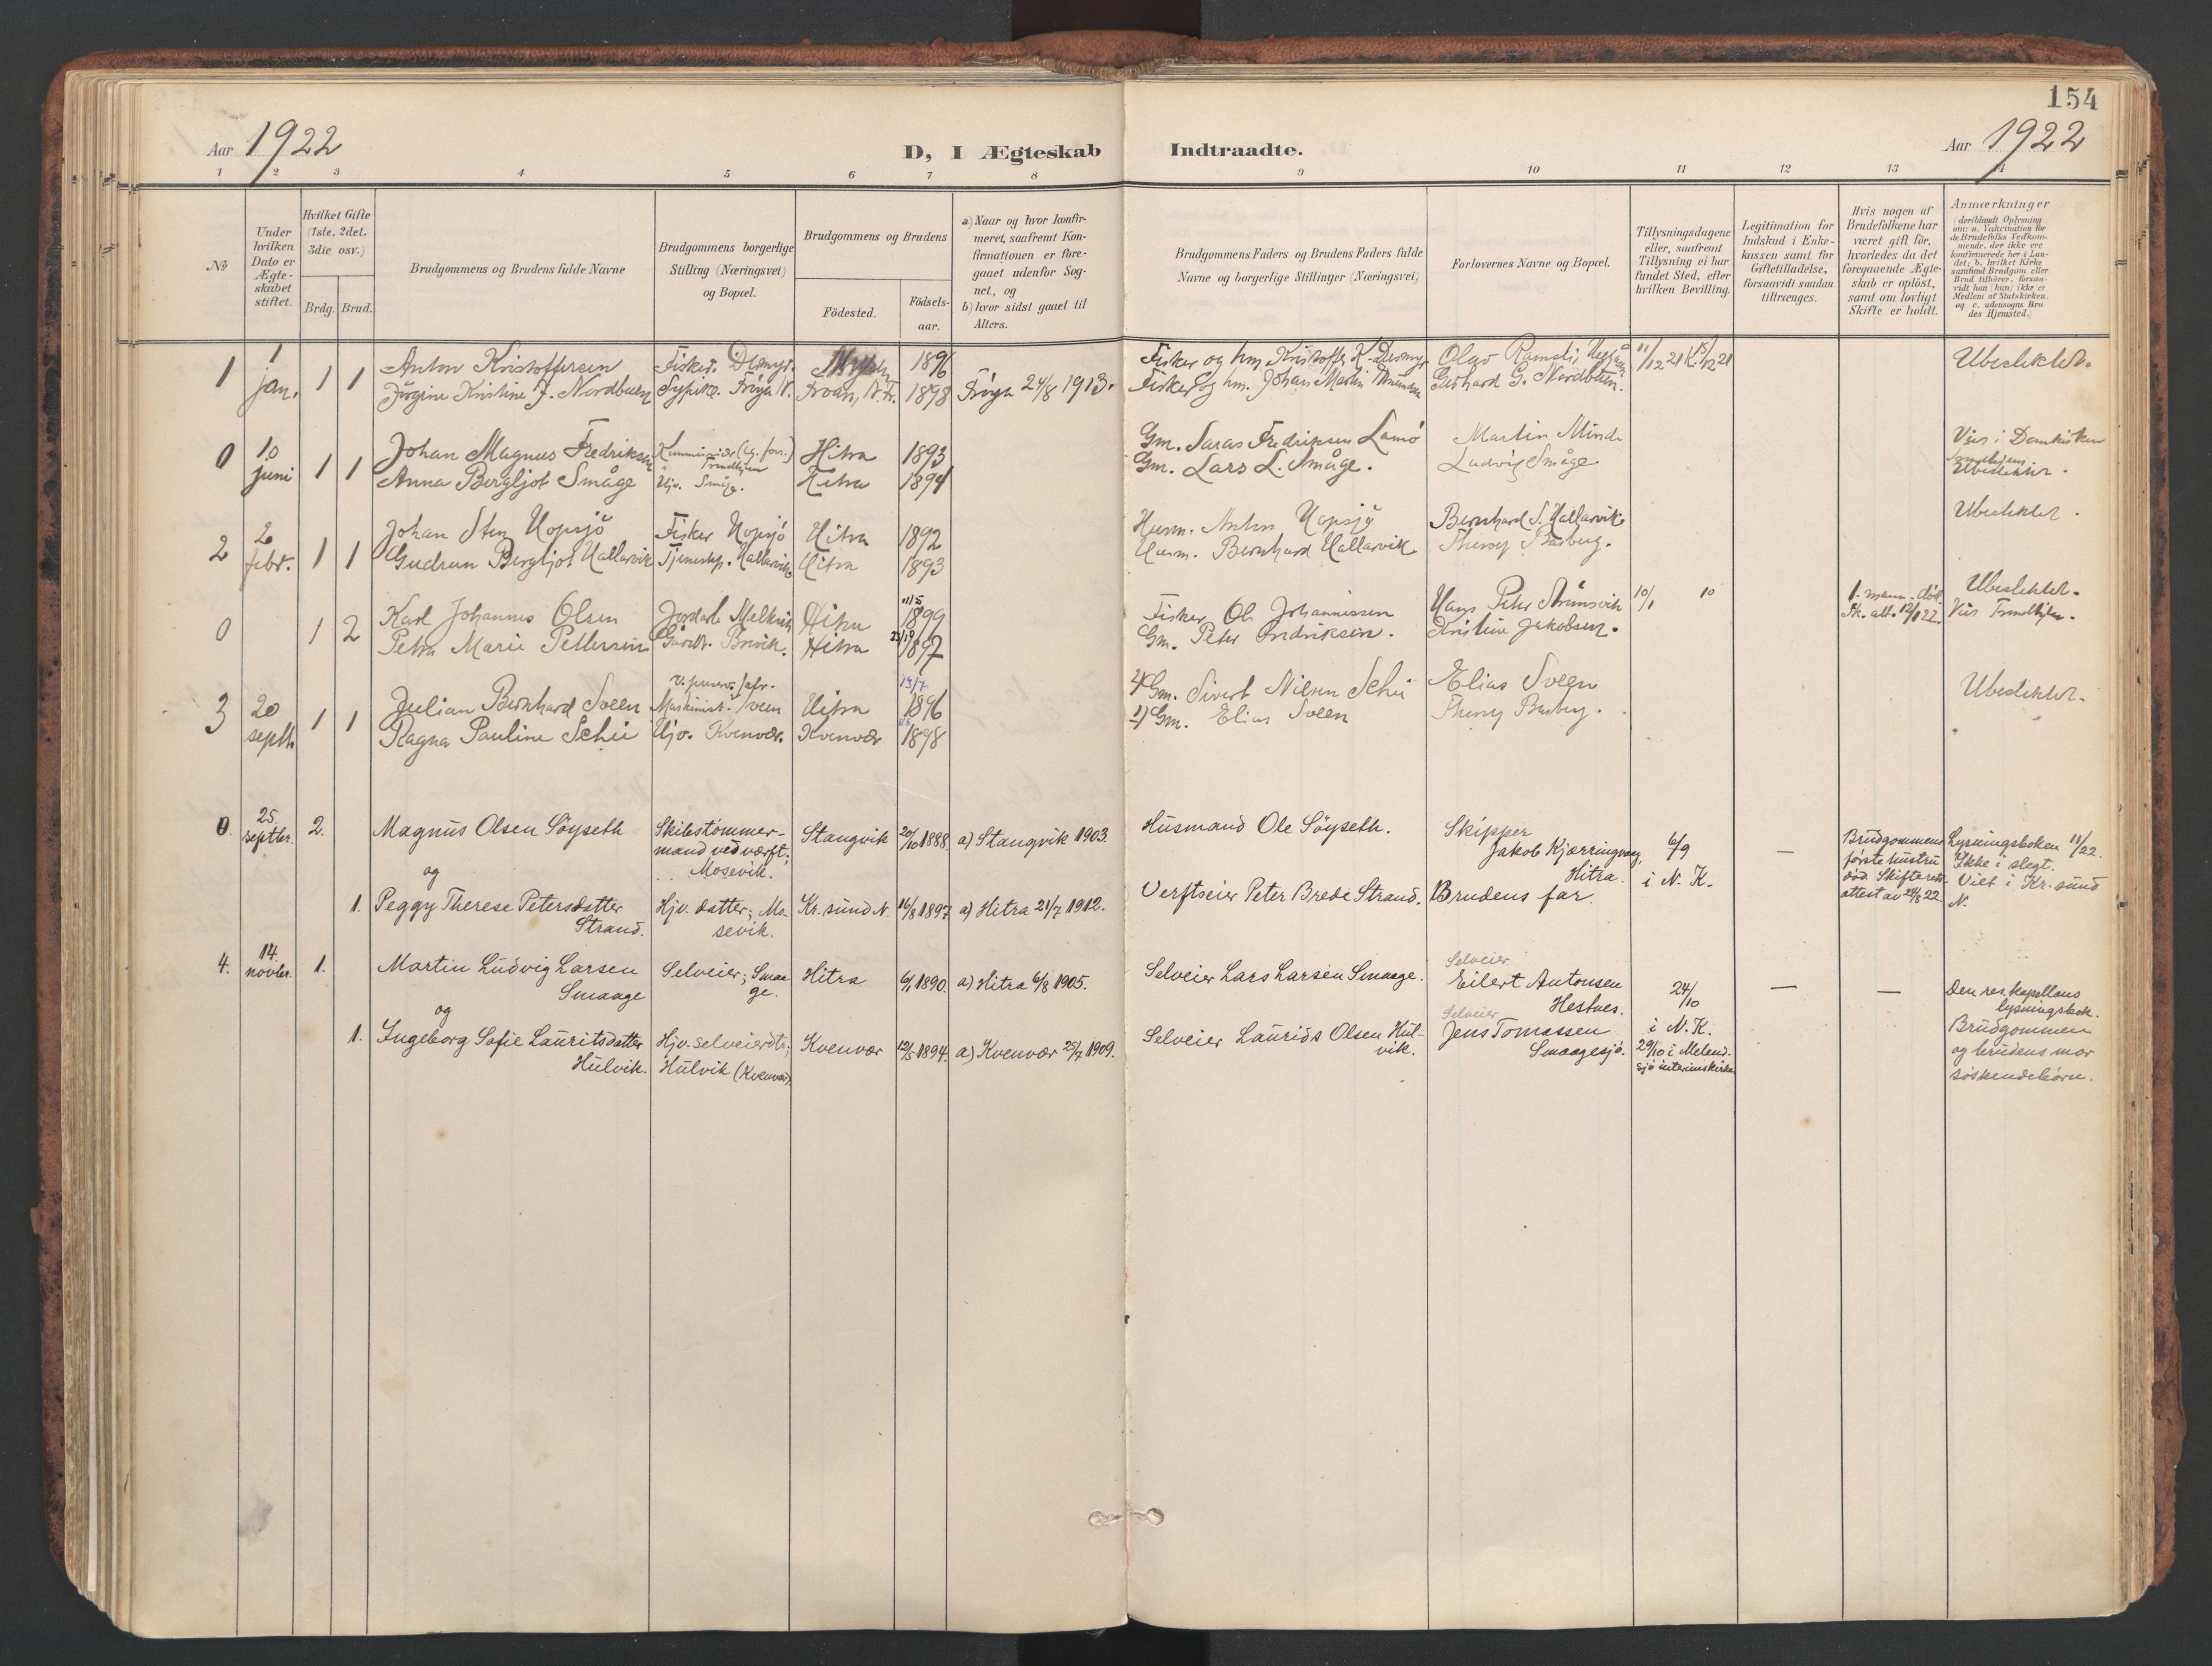 154
Aar 1922
D, I Ægteskab Indtraadte.
Aar 1922
1 2 3 4 5 6 7 8 9 10 11 12 13 14
No
Under hvilken Dato er Ægte-skabet stiftet.
Hvilket Gifte (1ste, 2det, 3die osv.)
Brdg. Brud.
Brudgommens og Brudens fulde Navne
Brudgommens borgerlige Stilling (Næringsvei) og Bopæl.
Brudgommens og Brudens
Fødested.
Fødsels-aar.
a) Naar og hvor konfir-meret, saafremt Kon-firmationen er fore-gaaet udenfor Sog-net, og
b) hvor sidst gaaet til Alters.
Brudgommens Faders og Brudens Faders fulde Navne og borgerlige Stillinger (Næringsvei)
Forlovernes Navne og Bopæl.
Tillysningsdagene eller, saafremt Tillysning ei har fundet Sted, efter hvilken Bevilling.
Legitimation for Indskud i Enke-kassen samt for Giftetilladelse, forsaavidt saadan tiltrænges.
Hvis nogen af Brudefolkene har været gift før, hvorledes da det foregaaende Ægte-skab er opløst, samt om lovligt Skifte er holdt.
Anmærkninger
(deriblandt Oplysning om: a. Vakcination for de Brudefolks Vedkom-mende, der ikke ere konfirmerede her i Lan-det; b. hvilket Kirke-samfund Brudgom eller Brud tilhører, forsaa-vidt han (hun) ikke er Medlem af Statskirken, og c. udensogns Bru-des Hjemsted.)
1 1 jan. 1 1
Anton Kristoffersen Fisker. 1896
Fisker og hm. Kristoffer K. Olav 11/12 21 Ubeslektet.
Jørgine Kristine J. Nordbuen Frøya N. 1898 Frøya 24/8 1913.
Fisker og hm. Johan Martin Gerhard G. Nordbuen.
0 10 juni 1 1
Johan Magnus Fredriksen Trondhjem Hitra 1893
Gm. Fredriksen Lamø Martin Minde Vies i Domkirken Trondhjem
Anna Bergljot Småge Hjv. Småge. Hitra 1894
Gm. Lars L. Småge. Ludvig Småge. Ubeslektet.
2 2 febr. 1 1
Johan Sten Hopsjø Fisker Hopsjø Hitra 1892
Husm. Anton Hopsjø Bernhard S. Hallarvik Ubeslektet.
Gudrun Bergljot Hallarvik Tjenestep. Hallarvik Hitra 1893
Husm. Bernhard Hallarvik
0 1 2
Karl Johannes Olsen Melkvik Hitra 1899
Fisker Ol. Johannessen Hans Peter 10/1 10 1. mann død. Ubeslektet.
Petra Marie Pettersen Hitra 1897
Gm. Peter Fredriksen. Kristine Jakobsen. Sk. att. 12/1 22. Vies Trondhjem.
3 20 septb. 1 1
Julian Bernhard Sveen Maskinist. Sveen Hitra 13/7 1896
2) Gm. Sivert Nilsen Schei Elias Sveen Ubeslektet.
Ragna Pauline Schei Hjv. Kvenvær. Kvenvær 1898
1) Gm. Elias Sveen
0. 25. septbr. 2.
Magnus Olsen Søyseth Skibstømmer-mand ved værft; Mosevik. Stangvik 20/10 1888. a) Stangvik 1903.
Husmand Ole Søyseth. Skipper Jakob Kjærringvaag, Hitra. 6/9 i N. K. — Brudgommens første hustru død. Skifteretts-attest av 24/8 22. Lysningsboken 11/22. Ikke i slegt. Viet i Kr.sund N.
og
1. Peggy Therese Petersdatter Strand. Hjv. datter; Mo-sevik. Kr.sund N. 16/8 1897. a) Hitra 21/7 1912.
Verftseier Peter Brede Strand. Brudens far.
4. 14. novbr. 1.
Martin Ludvig Larsen Smaage Selveier; Smaa-ge. Hitra 6/1 1890. a) Hitra 6/8 1905.
Selveier Lars Larsen Smaage. Selveier Eilert Antonsen Hestnes. 24/10 i N. K. — — Den res. kapellans lysningsbok.
og
1. Ingeborg Sofie Lauritsdatter Hulvik. Hjv. selveierdtr; Hulvik (Kvenvær). Kvenvær 12/5 1894. a) Kvenvær 25/7 1909.
Selveier Laurids Olsen Hul-vik. Selveier Jens Tomassen Smaagesjø. 29/10 i Meland-sjø interimskirke Brudgommen og brudens mor søskendebørn.